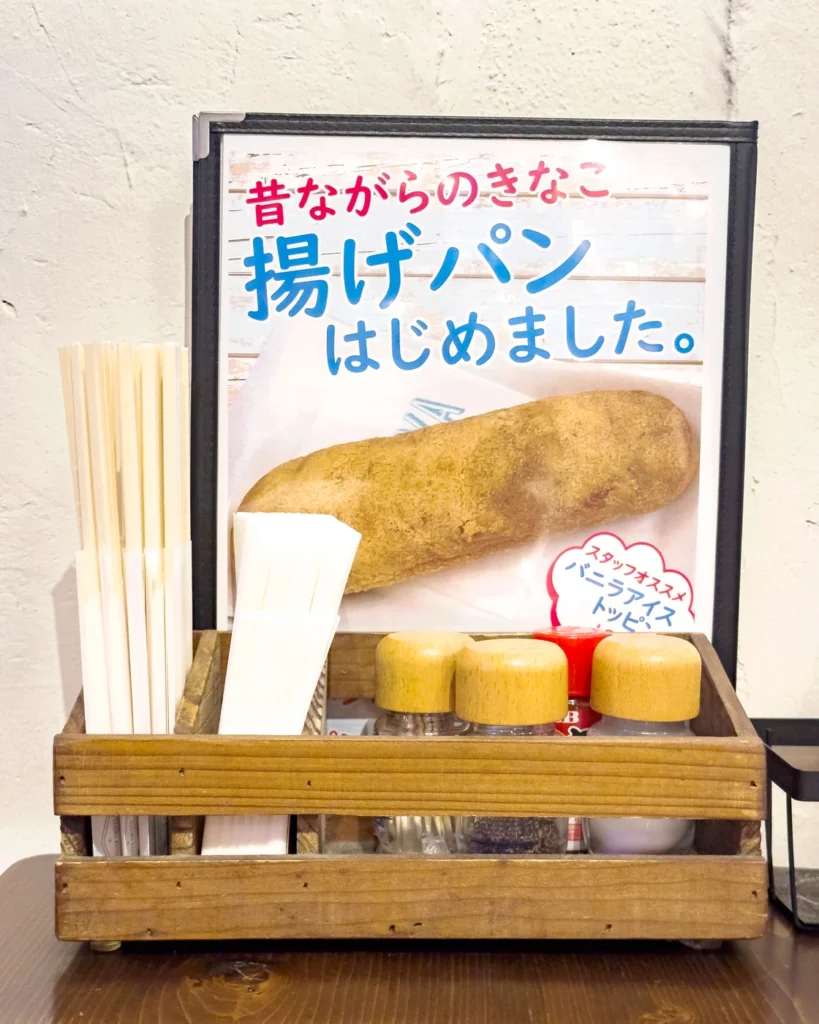 昔ながらのきなこ
揚げパン
はじめました。
スタッフオススメ
バニラアイス
トッピン